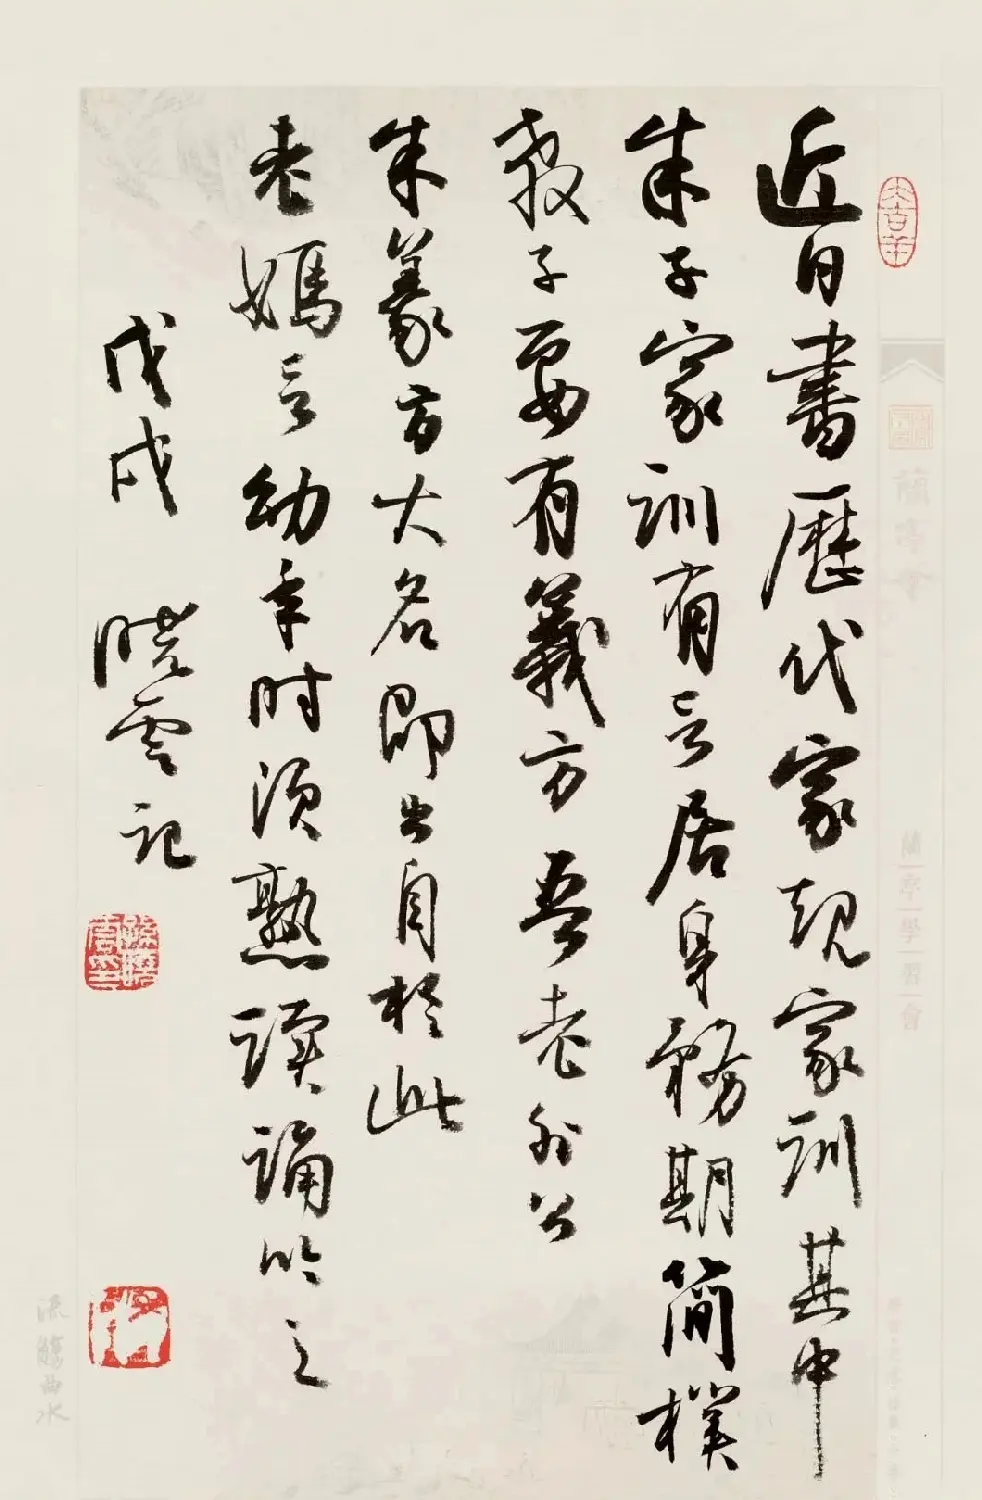 大吉羊
近日書歷代家規家訓其中
朱子家訓有言居身務期簡樸
教子要有義方吾老外公
朱義方大名即出自於此
老媽言幼年时須熟讀誦吟之
戊戌 曉雲記
孫曉雲印
蘭亭會
蘭亭學習會
流觴曲水